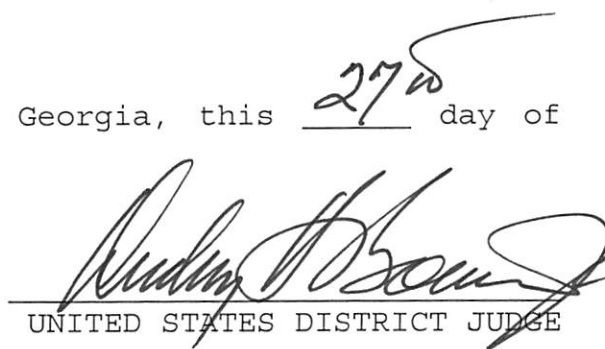 Georgia, this 27th day of
UNITED STATES DISTRICT JUDGE